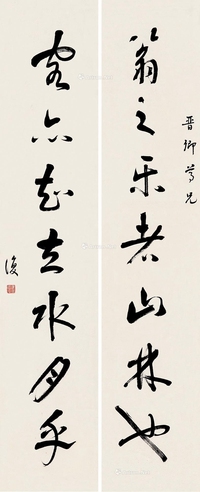 翁之乐者山林也
晋卿尊兄
客亦知夫水月乎
复